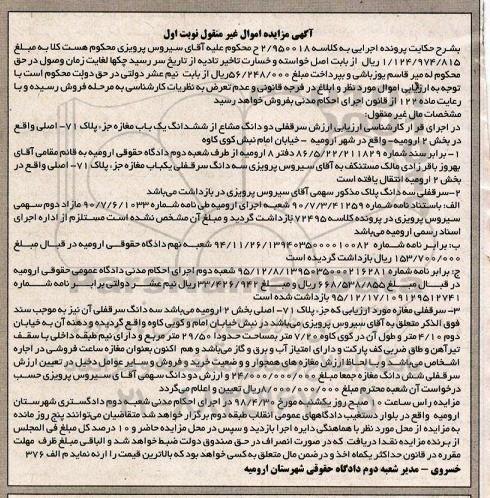 آگهی مزایده اموال غیر منقول نوبت اول
بشرح حکایت پرونده اجرایی به کلاسه ۲/۹۵۰۰۱۸ ح محکوم علیه آقای سیروس پرویزی محکوم هست کلا به مبلغ
۱/۱۲۴/۹۷۴/۸۱۵ ریال از بابت اصل خواسته و خسارت تاخیر تادیه از تاریخ سر رسید چکها لغایت زمان وصول در حق
محکوم له میر قاسم یوزباشی و بپرداخت مبلغ ۵۶/۲۴۸/۰۰۰ ریال از بابت نیم عشر دولتی در حق دولت محکوم است با
توجه به ارزیابی اموال مورد نظر و ابلاغ در فرجه قانونی و عدم تعرض به نظریات کارشناسی به مرحله فروش رسیده و با
رعایت ماده ۱۲۲ از قانون اجرای احکام مدنی بفروش خواهد رسید
مشخصات مال غیر منقول:
در اجرای قرار کارشناسی ارزیابی ارزش سرقفلی دو دانگ مشاع از ششدانگ یک باب مغازه جزء پلاک ۷۱- اصلی واقع
در بخش ۲ ارومیه- واقع در شهر ارومیه - خیابان امام نبش کوی کاوه
۱- برابر سند شماره ۸۶/۵/۲۲/۲۱۱۸۲۹ دفتر ۸ ارومیه از طرف شعبه دوم دادگاه حقوقی ارومیه به قائم مقامی آقای
بهروز باقر زادی مالک مستنکف به آقای سیروس پرویزی سه دانگ سرقفلی یکباب مغازه جزء پلاک ۷۱- اصلی واقع در
بخش ۲ ارومیه انتقال یافته است
۲-سرقفلی سه دانگ پلاک مذکور سهمی آقای سیروس پرویزی در بازداشت می‌باشد
الف: باستناد نامه شماره ۹۰/۷/۳/۴۱۲۵۹ شعبه اجرای ارومیه طی نامه شماره ۹۰/۷/۶/۱۱۰۳۳ مازاد دوم سهمی
سیروس پرویزی در پرونده کلاسه ۷۲۴۹۵ بازداشت گردید و مبلغ آن مشخص نشده است مستلزم از اداره اجرای
اسناد رسمی ارومیه می‌باشد
ب: برابر نامه شماره ۹۴/۱۱/۲۶/۱۳۹۴۰۳۵۰۰۰۰۱۰۰۸۲ شعبه نهم دادگاه حقوقی ارومیه در قبال مبلغ
۱۵۳/۷۰۰/۰۰۰ ریال بازداشت گردیده است
ج: برابر نامه شماره ۹۵/۱۲/۸/۱۳۹۵۰۳۵۰۰۰۲۱۶۲۸۱ شعبه دوم اجرای احکام مدنی دادگاه عمومی حقوقی ارومیه
در قبال مبلغ ۶۶۸/۵۳۸/۸۵۵ ریال و مبلغ ۳۳/۴۲۶/۹۴۲ ریال نیم عشر دولتی برابر نامه شماره
۹۵/۱۲/۱۷/۱۰۹۱۲۹۵۱۲۷۴۱ بازداشت شده است
۳- سرقفلی مغازه مورد ارزیابی که جزء پلاک ۷۱- اصلی بخش ۲ ارومیه می‌باشد سه دانگ سرقفلی آن نیز به موجب سند
فوق الذکر متعلق به آقای سیروس پرویزی می‌باشد در نبش خیابان امام و کوی کاوه واقع گردیده و دهنه آن به خیابان
دوم ۴/۱۰ متر و طول آن در کوی کاوه ۷/۲۰ متر بمساحت حدودا ۲۹/۵۰ متر مربع و دارای نیم طبقه داخلی با سقف
تیرآهن و طاق ضربی کف پارکت و دارای امتیاز آب و برق و گاز می‌باشد و هم اکنون بعنوان مغازه ساعت فروشی در اجاره
اشخاص می‌باشد و با لحاظ ارزش مغازه های همجوار و وضعیت خرید و فروش و سایر عوامل دخیل در تعیین ارزش
سرقفلی شش دانگ مغازه جمعا مبلغ ۲۴/۰۰۰/۰۰۰/۰۰۰ و ارزش دو دانگ سهمی آقای سیروس پرویزی حسب
درخواست آن شعبه محترم مبلغ ۸/۰۰۰/۰۰۰/۰۰۰ ریال تعیین و اعلام می‌گردد
مزایده راس ساعت ۱۰ صبح روز یکشنبه مورخ ۹۸/۴/۳۰ در اجرای احکام مدنی شعبه دوم دادگستری شهرستان
ارومیه واقع در بلوار دستغیب دادگاههای عمومی انقلاب طبقه دوم برگزار خواهد شد متقاضیان می‌توانند پنج روز مانده
به مزایده از محل مورد نظر با هماهنگی دایره اجرا بازدید و سپس در محل مزایده حاضر و ۱۰ درصد کل مبلغ فی المجلس
از برنده مزایده نقدا دریافت که در صورت انصراف در حق صندوق دولت ضبط خواهد شد و الباقی مبلغ ظرف مهلت
مقرره در قانون حداکثر یکماه اخذ و در ضمن مال متعلق به کسی خواهد بود که بالاترین قیمت را ارئه نماید م الف ۳۷۶
خسروی - مدیر شعبه دوم دادگاه حقوقی شهرستان ارومیه